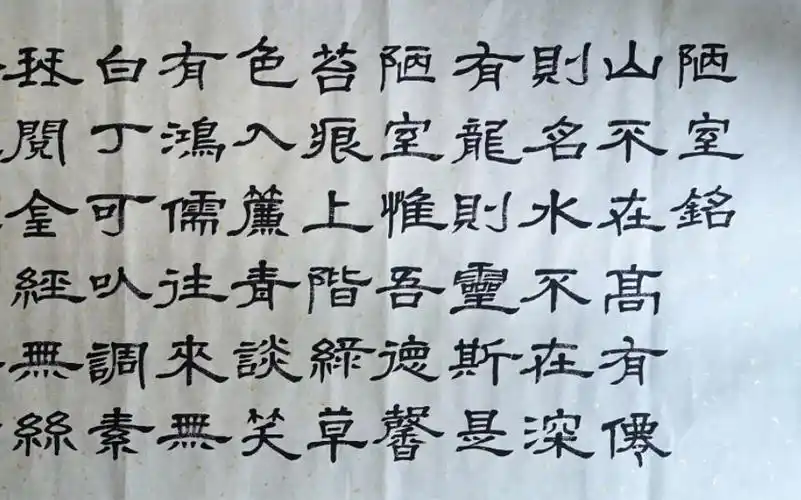 陋室銘
山不在髙有僊
則名水不在深
有龍則靈斯是
陋室惟吾德馨
苔痕上階綠草
色入簾青談笑
有鴻儒往來無
白丁可㕥調素
琴閱金經無絲